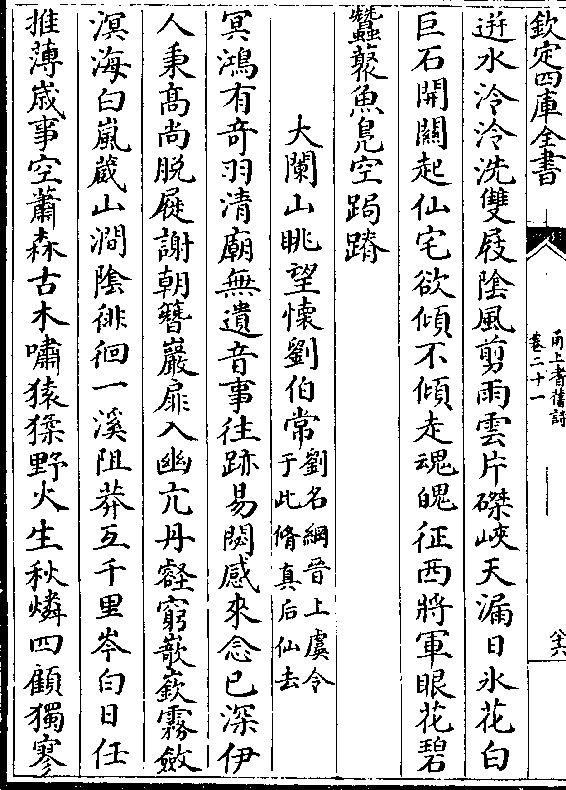 欽定四庫全書
甬上耆舊詩
卷二十一
迸水泠泠洗雙屐陰風剪雨雲片磔峽天漏日氷花白
巨石開闢起仙宅欲傾不傾走魂魄征西將軍眼花碧
蠶叢魚鳬空跼蹐
大闌山眺望懷劉伯常劉名綱晉上虞令
于此脩真后仙去
冥鴻有奇羽清廟無遺音事往跡易閟感來念已深伊
人秉髙尚脱屣謝朝簪巖扉入幽亢丹壑窮嶔嶔霧斂
溟海白嵐蔵山澗陰徘徊一溪阻莽互千里岑白日任
推薄嵗事空蕭森古木嘯猿猱野火生秋燐四顧獨寥